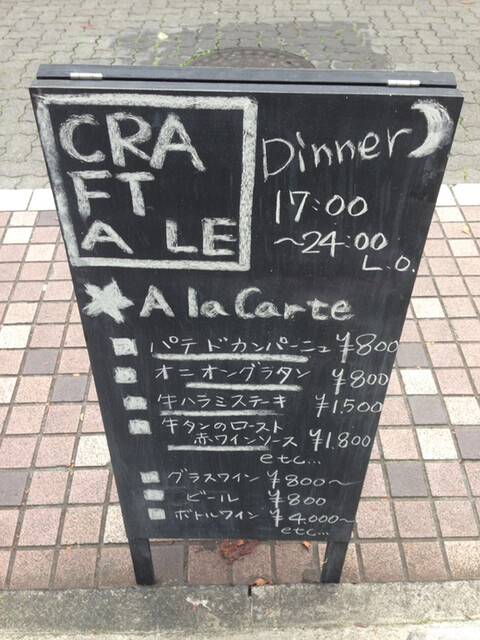 CRA
FT
A LE
Dinner
17:00
~24:00
L.O.
A la Carte
パテドカンパーニュ ¥800
オニオングラタン ¥800
牛ハラミステーキ ¥1,500
牛タンのロースト
赤ワインソース ¥1,800
etc...
グラスワイン ¥800~
ビール ¥800
ボトルワイン ¥4,000~
etc...